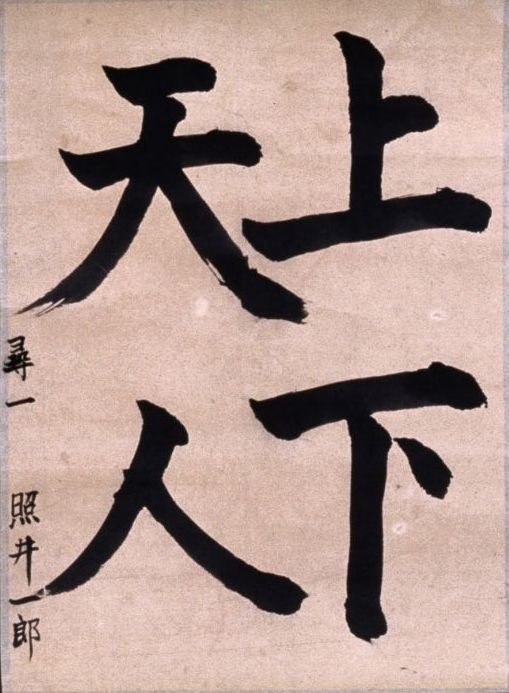 上下
天人
尋一 照井一郎